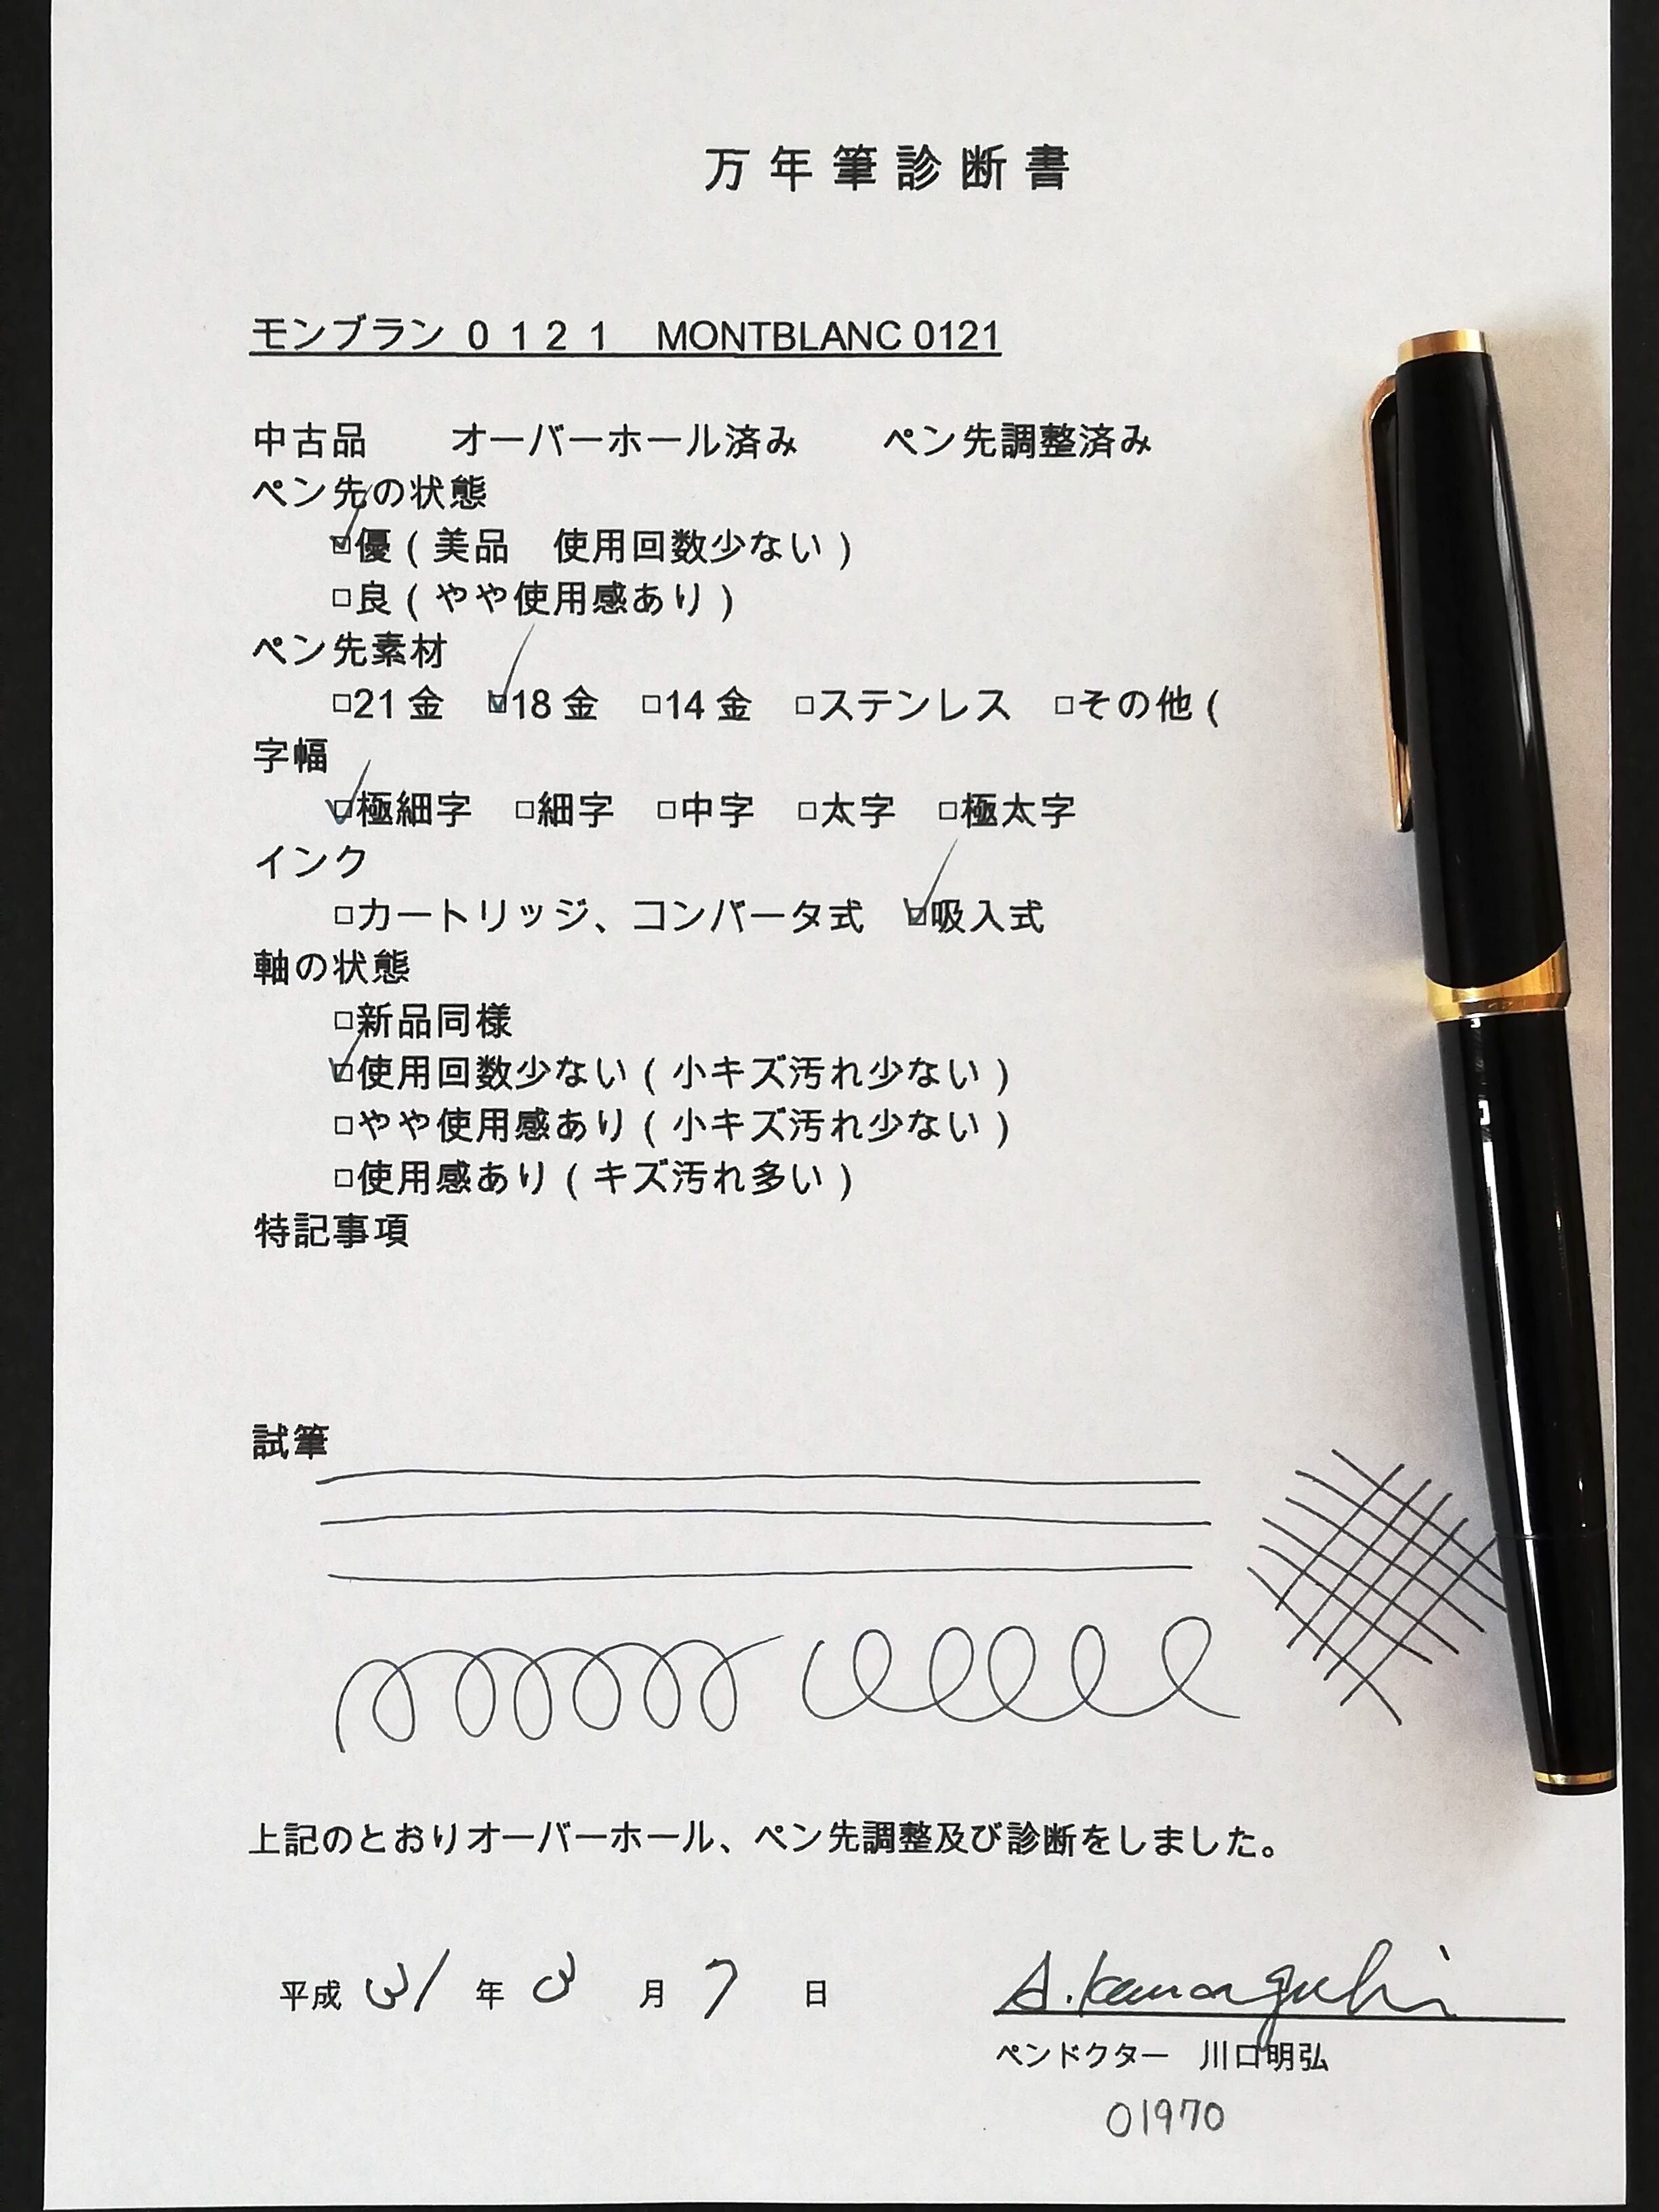 万年筆診断書
モンブラン ０１２１　MONTBLANC 0121
中古品　　オーバーホール済み　　ペン先調整済み
ペン先の状態
☑優（美品　使用回数少ない）
□良（やや使用感あり）
ペン先素材
□21金　☑18金　□14金　□ステンレス　□その他（
字幅
☑極細字　□細字　□中字　□太字　□極太字
インク
□カートリッジ、コンバータ式　☑吸入式
軸の状態
□新品同様
☑使用回数少ない（小キズ汚れ少ない）
□やや使用感あり（小キズ汚れ少ない）
□使用感あり（キズ汚れ多い）
特記事項
試筆
上記のとおりオーバーホール、ペン先調整及び診断をしました。
平成 31 年 3 月 7 日
A.Kawaguchi
ペンドクター　川口明弘
01970